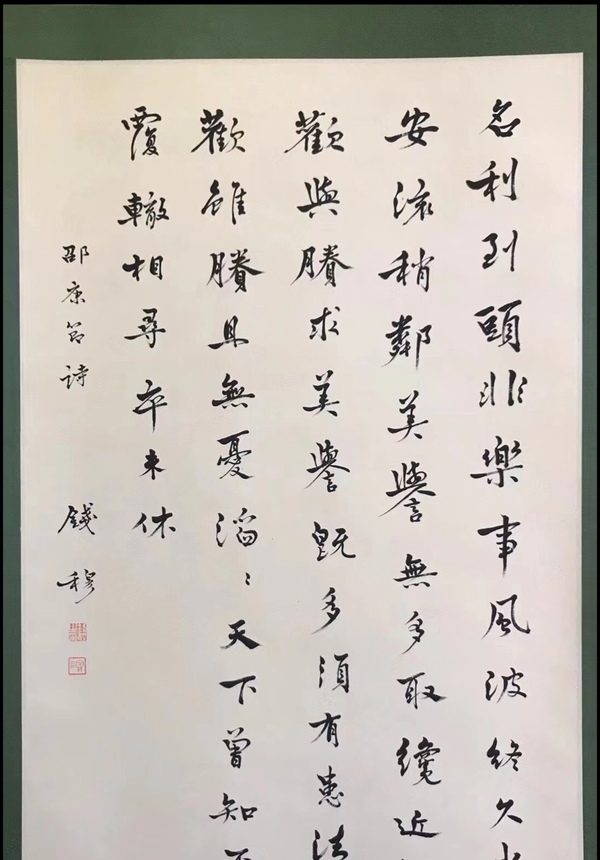 名利到頭非樂事風波終久
安流稍鄰美譽無多取纔近
歡與賸求美譽既多須有患清
歡雖賸且無憂滔〻天下曾知
覆轍相尋卒未休
邵康節詩
錢穆